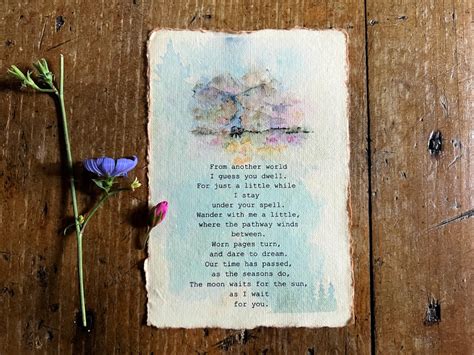 From another world
I guess you dwell.
For just a little while
I stay
under your spell.
Wander with me a little,
where the pathway winds
between.
Worn pages turn,
and dare to dream.
Our time has passed,
as the seasons do,
The moon waits for the sun,
as I wait
for you.